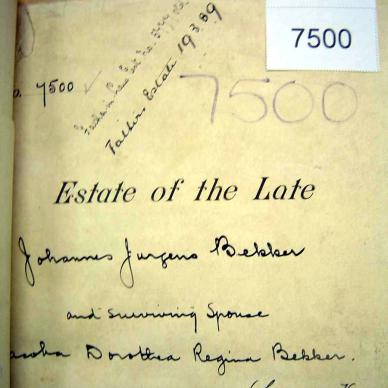 7500
7500
Father in Law Est. No.
Fathers Estate 19389
7500
Estate of the Late
Johannes Jurgens Bekker
and surviving Spouse
acoba Dorothea Regina Bekker.